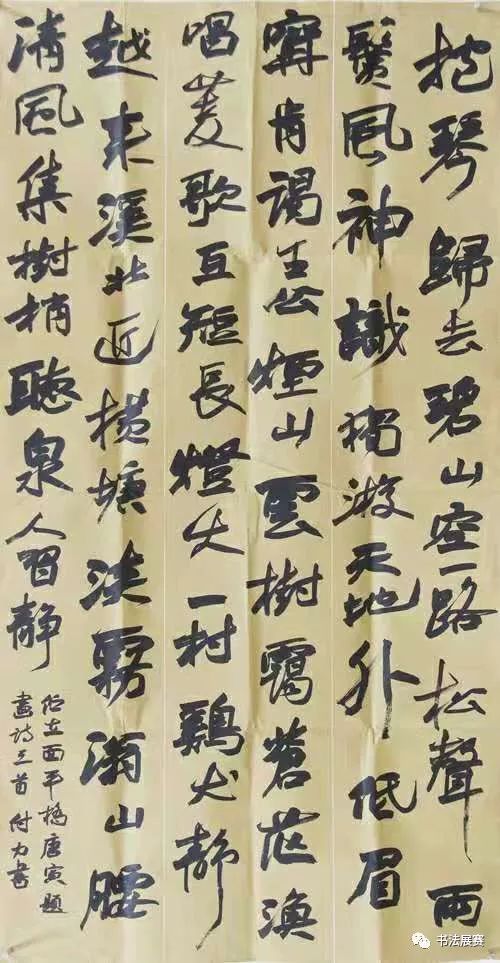 抱琴歸去碧山空一路松聲兩
鬢風神識獨遊天地外低眉
寧肯謁王公煙山雲樹靄蒼茫漁
唱菱歌互短長燈火一村鷄犬靜
越来溪北近横塘淡霧滿山腰
清風集樹梢聽泉人習靜
平橋唐寅題
畫詩三首付力書
书法展赛